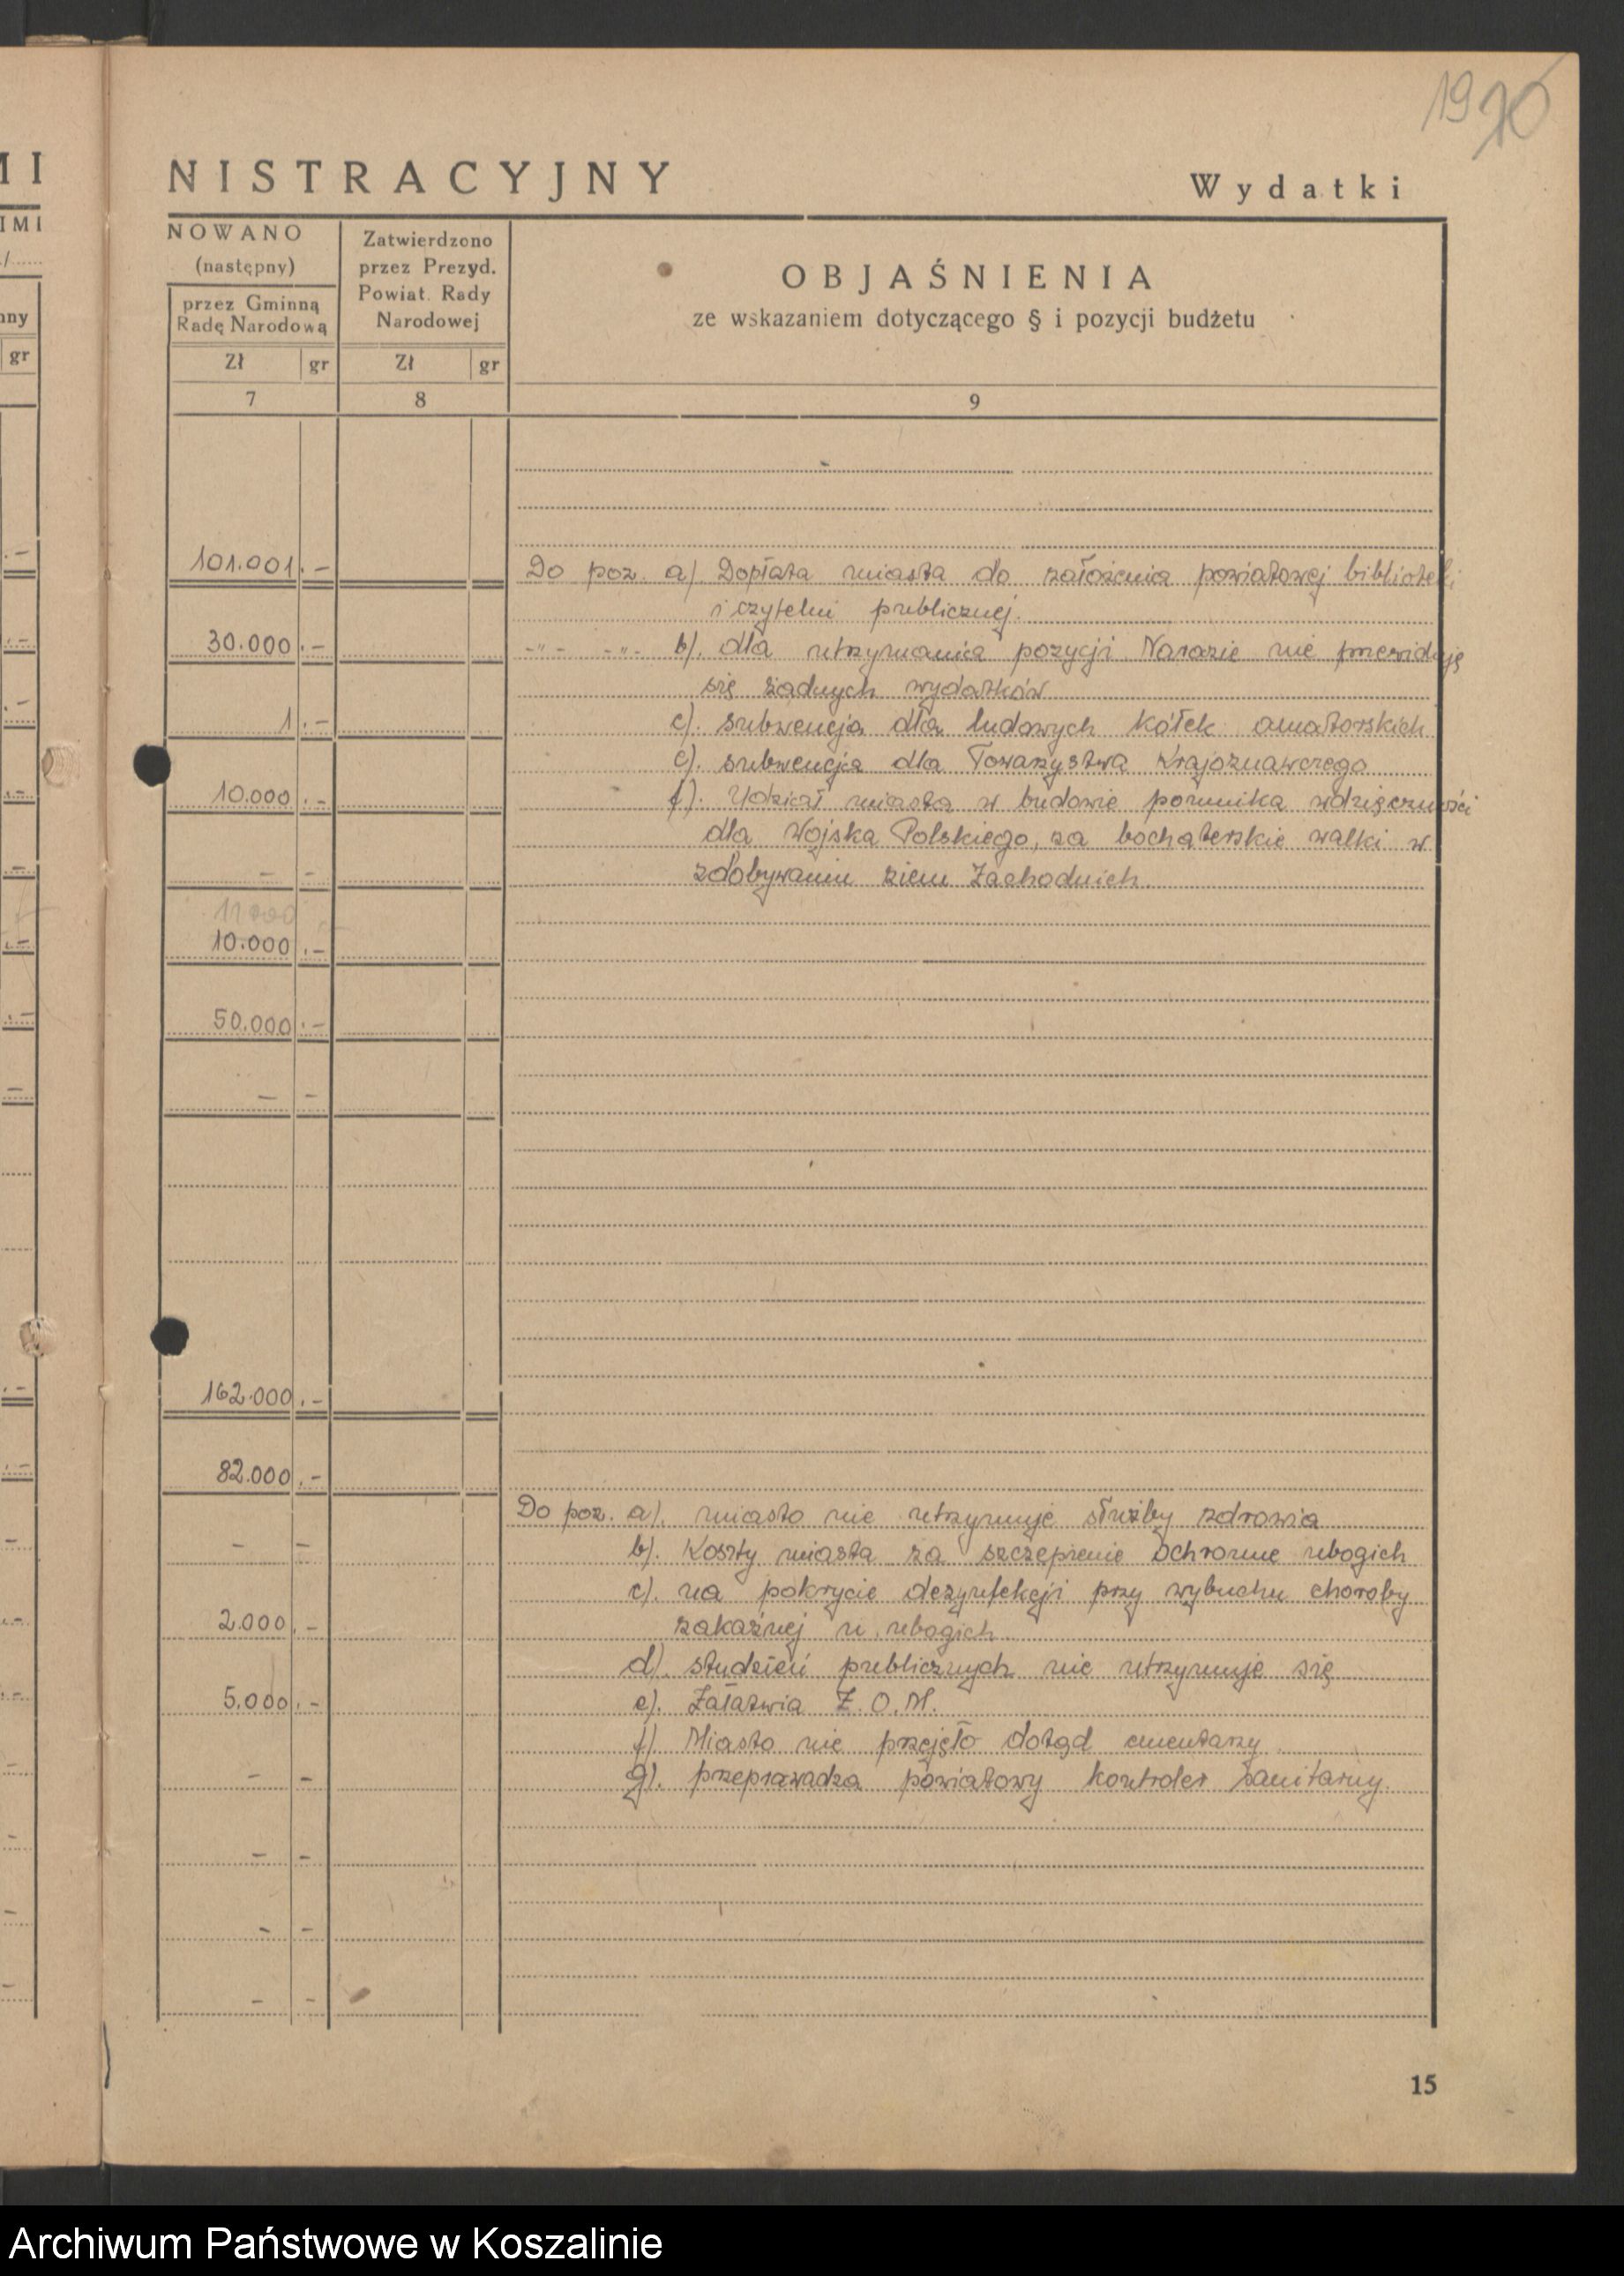 19 20
MI
NISTRACYJNY
Wydatki
IMI
NOWANO
(następny)
przez Gminną
Radę Narodową
Zatwierdzono
przez Prezyd.
Powiat. Rady
Narodowej
OBJAŚNIENIA
ze wskazaniem dotyczącego § i pozycji budżetu
gr
Zł gr Zł gr
7 8 9
101.001.- Do poz. a) Dopłata miasta do założenia powiatowej biblioteki
i czytelni publicznej.
30.000.- -"- -"- b). dla utrzymania pozycji. Narazie nie przewiduję
się żadnych wydatków
1.- c). subwencja dla ludowych kółek amatorskich
e). subwencja dla Towarzystwa Krajoznawczego
10.000.- f). Udział miasta w budowie pomnika wdzięczności
dla Wojska Polskiego, za bochaterskie walki w
- - zdobywaniu ziem Zachodnich
11000
10.000.-
50.000.-
- -
162.000.-
82.000.-
Do poz. a). miasto nie utrzymuje służby zdrowia
- - b). Koszty miasta za szczepienie ochronne ubogich
c). na pokrycie dezynfekcji przy wybuchu choroby
2.000.- zakaźnej u ubogich
d). studzień publicznych nie utrzymuje się
5.000.- e). Załatwia Z.O.M.
f) Miasto nie przejęło dotąd cmentarzy
- - g). przeprawadza powiatowy kontroler sanitarny.
- -
- -
- -
15
Archiwum Państwowe w Koszalinie